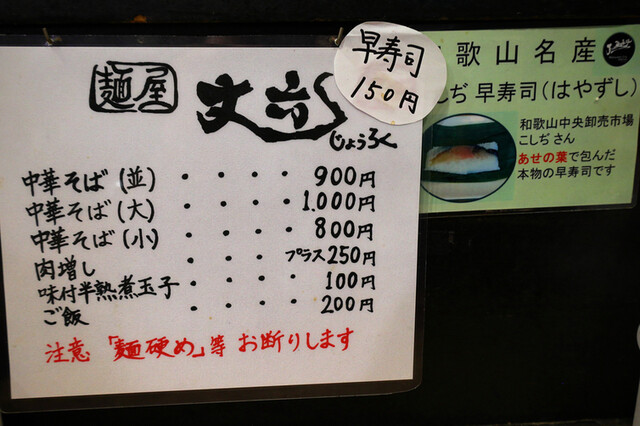 麺屋 丈六
じょうろく
早寿司
150円
中華そば(並)・・・・900円
中華そば(大)・・・・1.000円
中華そば(小)・・・・800円
肉増し・・・・プラス250円
味付半熟煮玉子・・・・100円
ご飯・・・・200円
注意「麺硬め」等 お断りします
歌山名産
こしぢ 早寿司(はやずし)
和歌山中央卸売市場
こしぢさん
あせの葉で包んだ
本物の早寿司です